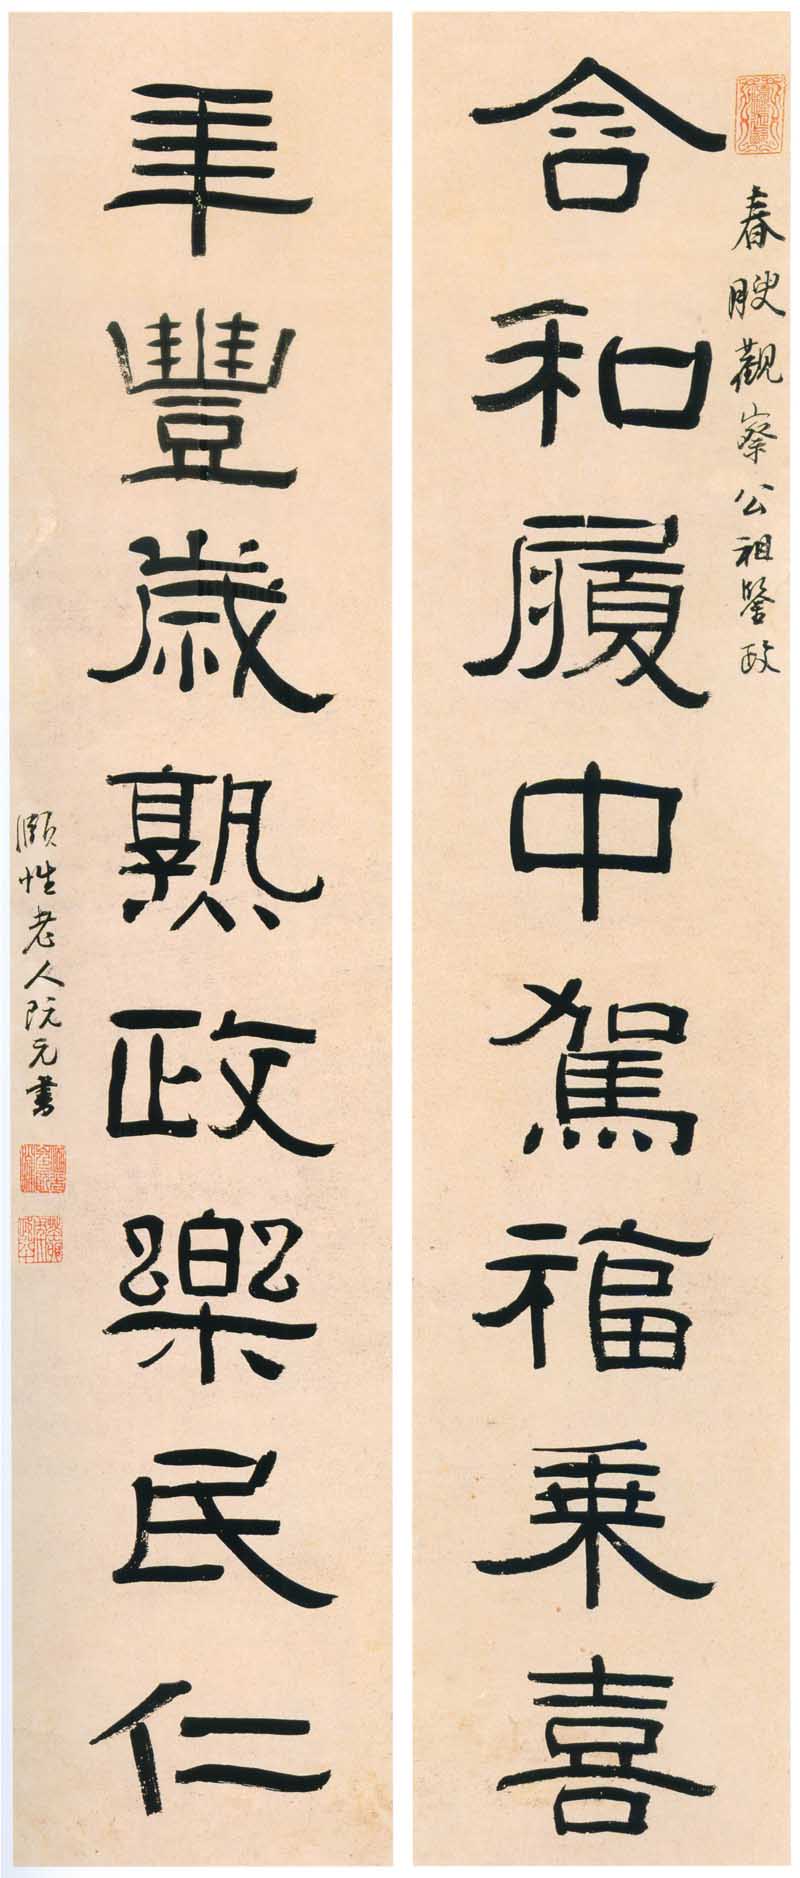 春腴觀察公祖鑒政
含和履中駕福乘喜
年豐歲熟政樂民仁
頤性老人阮元書